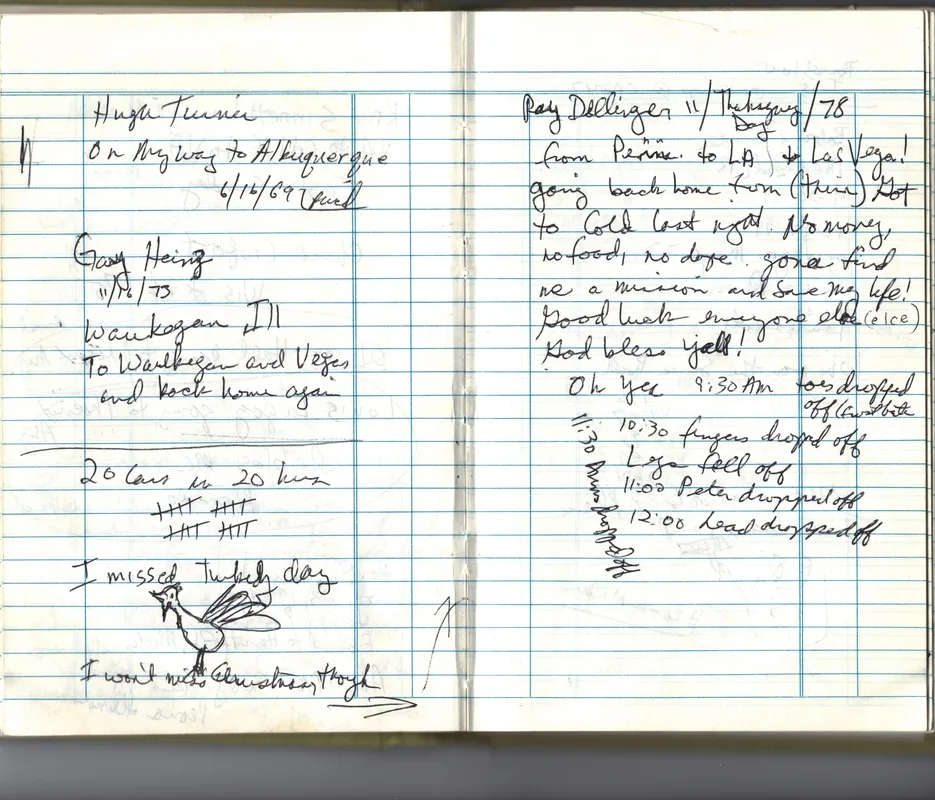 Hugh Turner
On My way to Albuquerque
6/16/69
Gary Heinz
11/16/73
Waukegan Ill
To Waukegan and Vegas
and back home again
20 Cars in 20 hrs
I missed Turkey day
I won't miss Christmas, though
Ray Dellinger 11/Thanksgiving Day/78
from Penna. to LA to Las Vega!
going back home from (there) Got
to Cold last night. No money,
no food, no dope. gonna find
me a mission and save my life!
Good luck everyone else (elce)
God bless y'all!
Oh yea 9:30 AM toes dropped
off (frostbite
10:30 fingers dropped off
Legs fell off
11:00 Peter dropped off
11:30 Arms dropped off
12:00 head dropped off